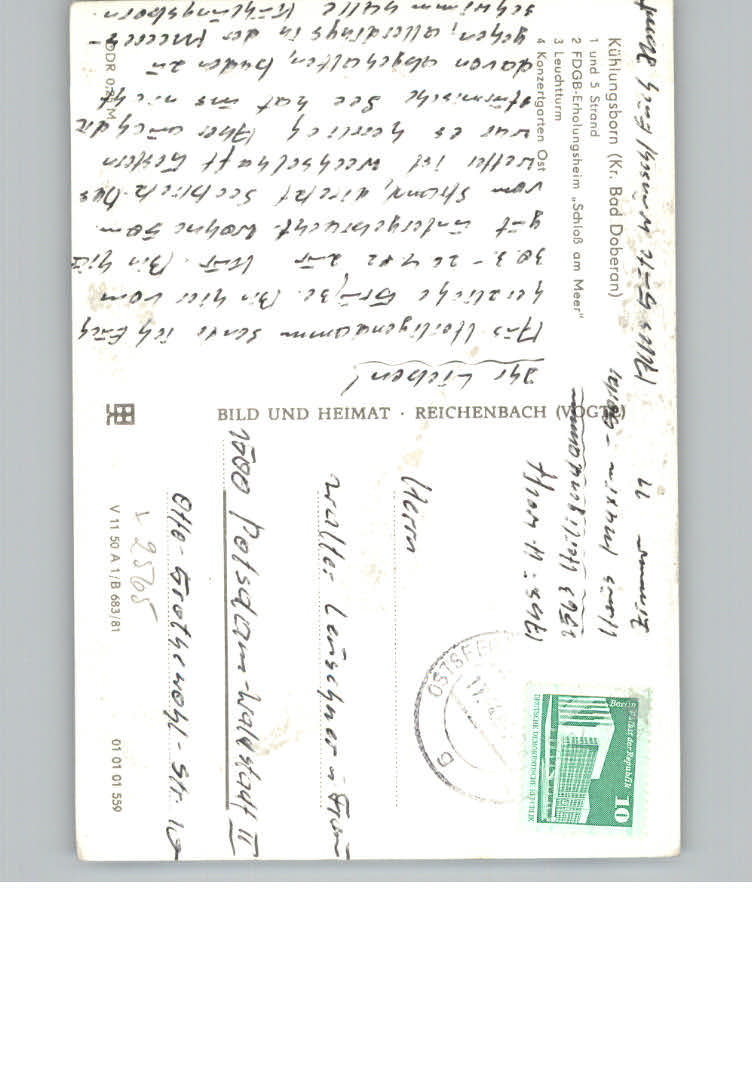 Kühlungsborn (Kr. Bad Doberan)
1 und 5 Strand
2 FDGB-Erholungsheim „Schloß am Meer“
3 Leuchtturm
4 Konzertgarten Ost
Ihr Lieben!
Aus Heiligendamm sende ich Euch
herzliche Grüße. Bin hier vom
30.3 - 26.4.82 zur Kur. Bin hier
gut untergebracht. Wohne 50 m
vom Strand, direkt Seeblick. Das
Wetter ist wechselhaft Gestern
war es herrlich Aber auch die
stürmische See hat uns nicht
davon abgehalten, baden zu
gehen, allerdings in der Meeres-
schwimmhalle Kühlungsborn
Alles Gute wünscht Euch
BILD UND HEIMAT · REICHENBACH (VOGTL)
Abs: H.
Heiligendamm
Haus
Zimmer 11
OSTSEE
Berlin Palast der Republik
10
DEUTSCHE DEMOKRATISCHE REPUBLIK
Herrn
Walter Leuschner u. Frau
1500 Potsdam-Waldstadt II
Otto-Grothewohl-Str. 10
L 2565
V 11 50 A 1/B 683/81
01 01 01 559